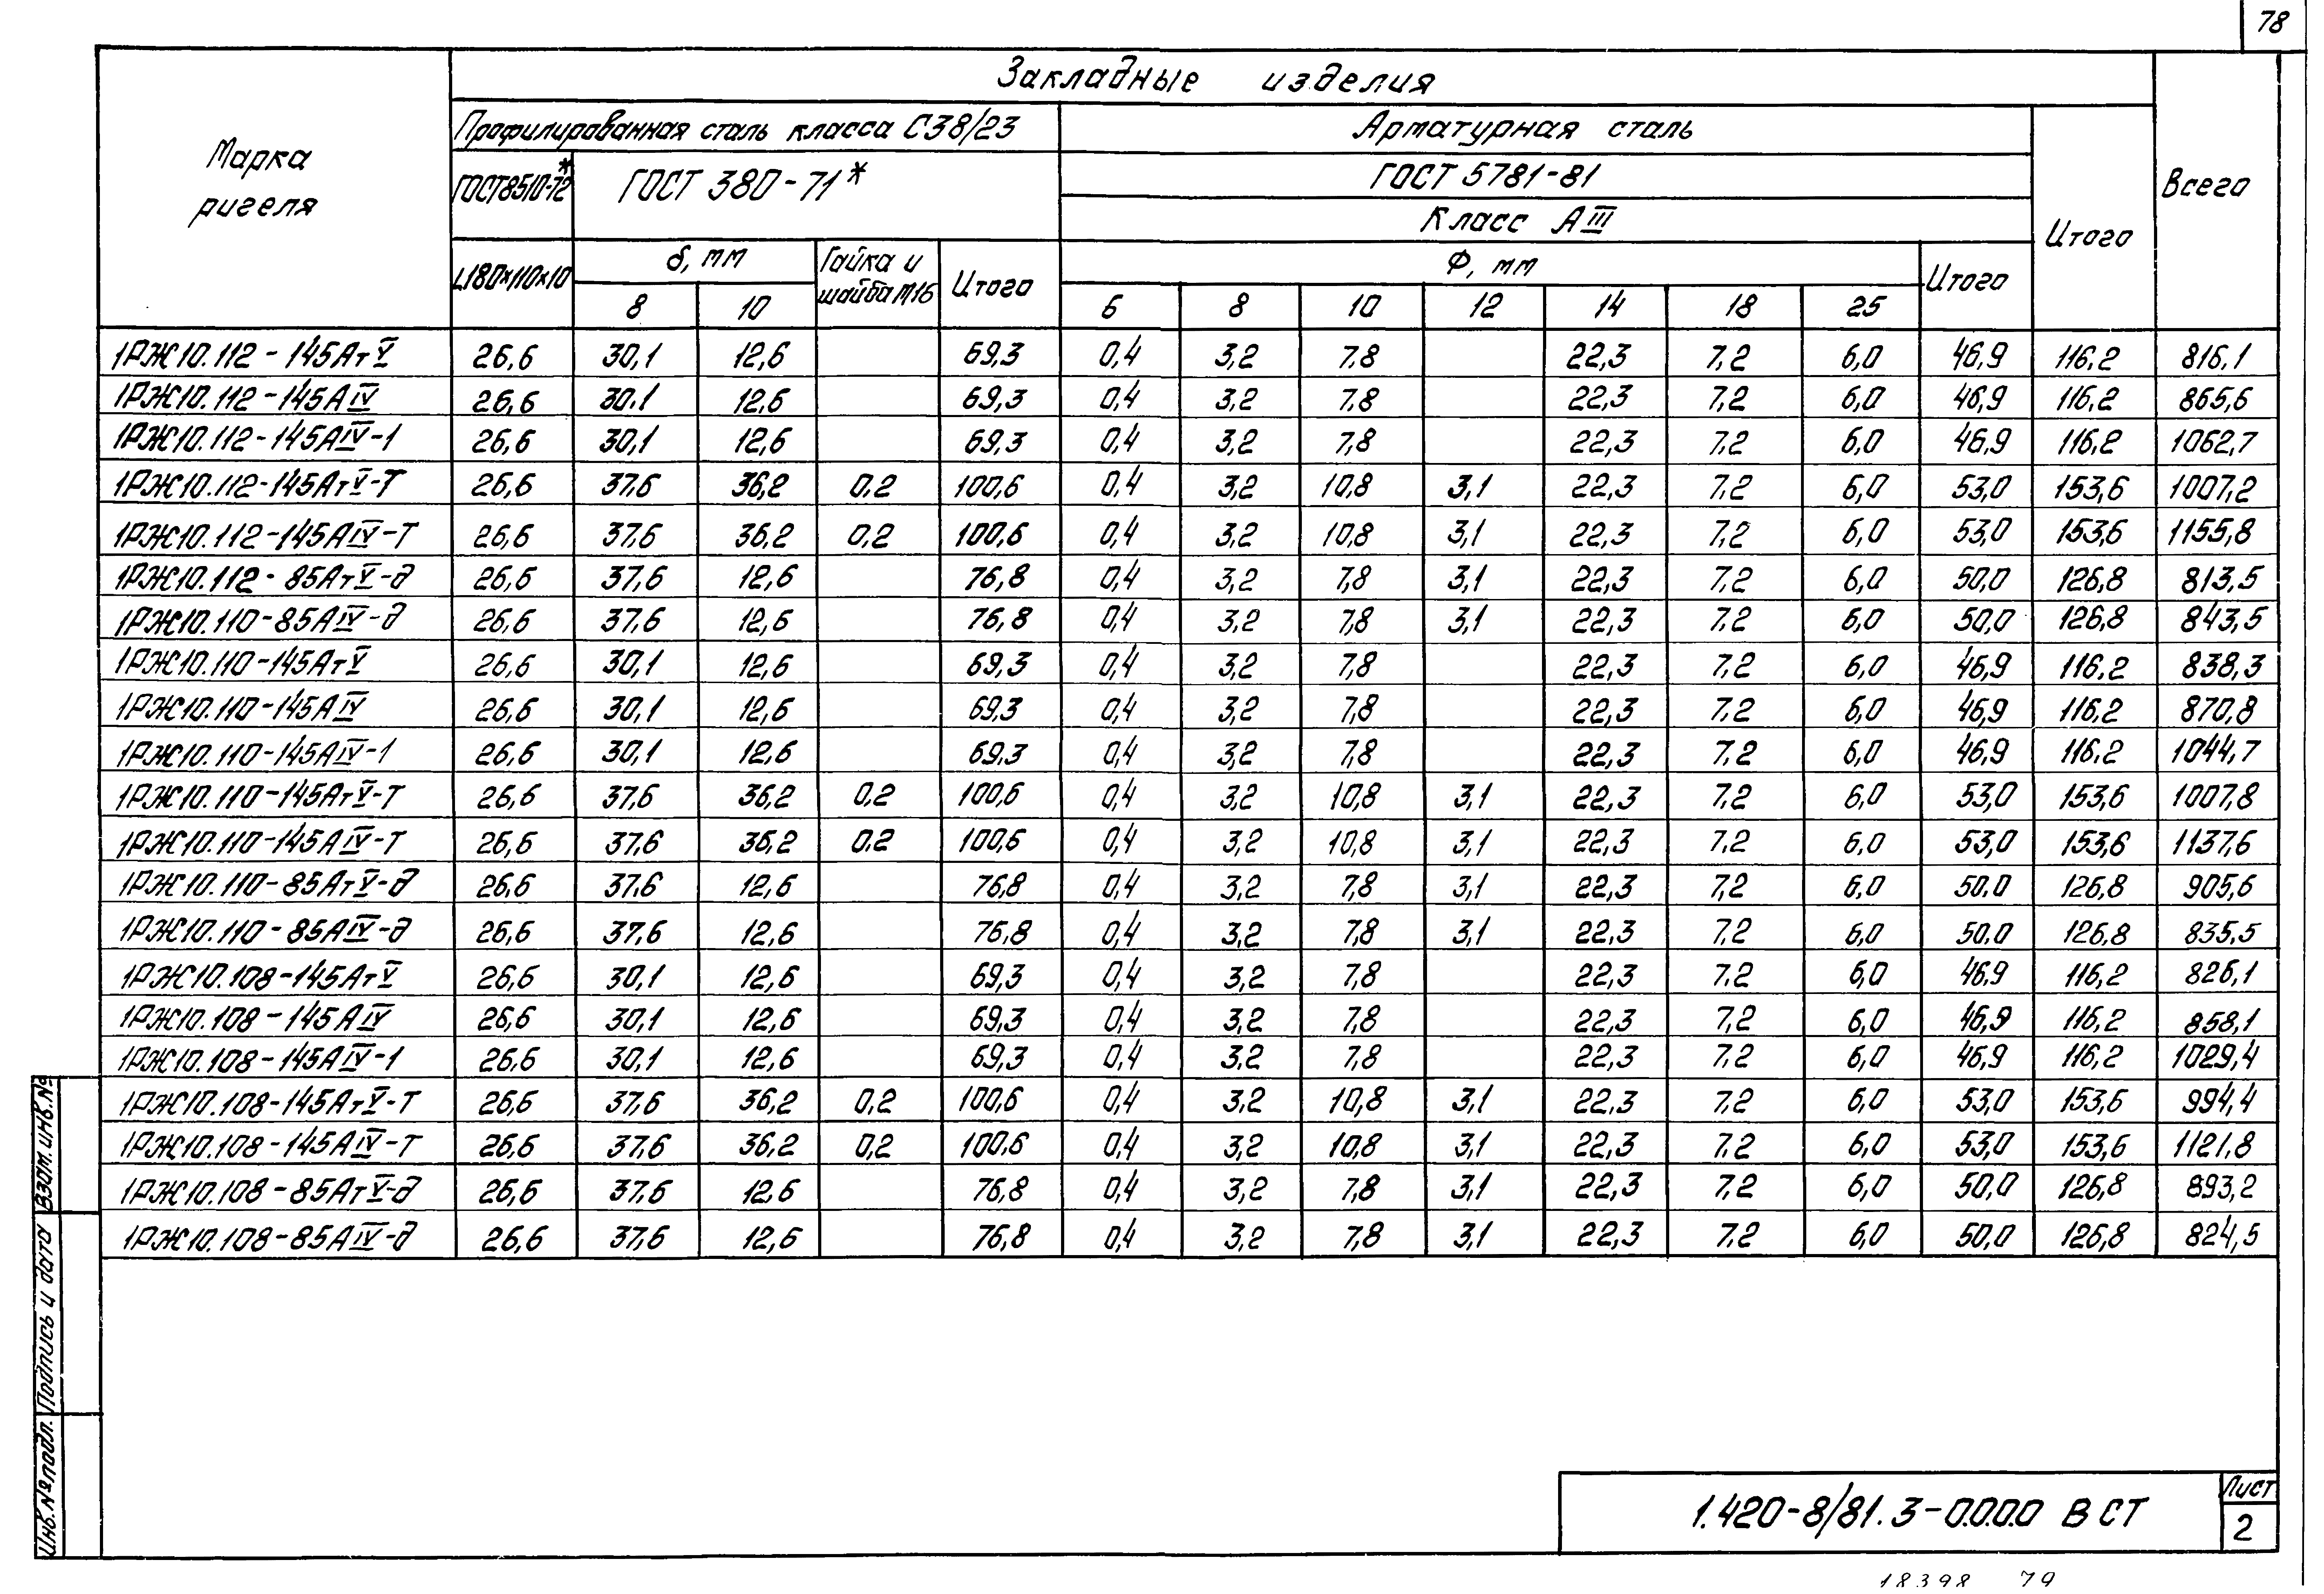 78
Закладные изделия
Марка ригеля
Профилированная сталь класса С38/23
Арматурная сталь
Итого
Всего
ГОСТ8510-72*
ГОСТ 380-71*
ГОСТ 5781-81
Класс АIII
L180×110×10
δ, мм
Гайка и шайба М16
Итого
Ф, мм
Итого
8 10 6 8 10 12 14 18 25
1РЖ10.112-145АтV 26,6 30,1 12,6 69,3 0,4 3,2 7,8 22,3 7,2 6,0 46,9 116,2 816,1
1РЖ10.112-145АIV 26,6 30,1 12,6 69,3 0,4 3,2 7,8 22,3 7,2 6,0 46,9 116,2 865,6
1РЖ10.112-145АIV-1 26,6 30,1 12,6 69,3 0,4 3,2 7,8 22,3 7,2 6,0 46,9 116,2 1062,7
1РЖ10.112-145АтV-Т 26,6 37,6 36,2 0,2 100,6 0,4 3,2 10,8 3,1 22,3 7,2 6,0 53,0 153,6 1007,2
1РЖ10.112-145АIV-Т 26,6 37,6 36,2 0,2 100,6 0,4 3,2 10,8 3,1 22,3 7,2 6,0 53,0 153,6 1155,8
1РЖ10.112-85АтV-д 26,6 37,6 12,6 76,8 0,4 3,2 7,8 3,1 22,3 7,2 6,0 50,0 126,8 813,5
1РЖ10.110-85АIV-д 26,6 37,6 12,6 76,8 0,4 3,2 7,8 3,1 22,3 7,2 6,0 50,0 126,8 843,5
1РЖ10.110-145АтV 26,6 30,1 12,6 69,3 0,4 3,2 7,8 22,3 7,2 6,0 46,9 116,2 838,3
1РЖ10.110-145АIV 26,6 30,1 12,6 69,3 0,4 3,2 7,8 22,3 7,2 6,0 46,9 116,2 870,8
1РЖ10.110-145АIV-1 26,6 30,1 12,6 69,3 0,4 3,2 7,8 22,3 7,2 6,0 46,9 116,2 1044,7
1РЖ10.110-145АтV-Т 26,6 37,6 36,2 0,2 100,6 0,4 3,2 10,8 3,1 22,3 7,2 6,0 53,0 153,6 1007,8
1РЖ10.110-145АIV-Т 26,6 37,6 36,2 0,2 100,6 0,4 3,2 10,8 3,1 22,3 7,2 6,0 53,0 153,6 1137,6
1РЖ10.110-85АтV-д 26,6 37,6 12,6 76,8 0,4 3,2 7,8 3,1 22,3 7,2 6,0 50,0 126,8 905,6
1РЖ10.110-85АIV-д 26,6 37,6 12,6 76,8 0,4 3,2 7,8 3,1 22,3 7,2 6,0 50,0 126,8 835,5
1РЖ10.108-145АтV 26,6 30,1 12,6 69,3 0,4 3,2 7,8 22,3 7,2 6,0 46,9 116,2 826,1
1РЖ10.108-145АIV 26,6 30,1 12,6 69,3 0,4 3,2 7,8 22,3 7,2 6,0 46,9 116,2 858,1
1РЖ10.108-145АIV-1 26,6 30,1 12,6 69,3 0,4 3,2 7,8 22,3 7,2 6,0 46,9 116,2 1029,4
1РЖ10.108-145АтV-Т 26,6 37,6 36,2 0,2 100,6 0,4 3,2 10,8 3,1 22,3 7,2 6,0 53,0 153,6 994,4
1РЖ10.108-145АIV-Т 26,6 37,6 36,2 0,2 100,6 0,4 3,2 10,8 3,1 22,3 7,2 6,0 53,0 153,6 1121,8
1РЖ10.108-85АтV-д 26,6 37,6 12,6 76,8 0,4 3,2 7,8 3,1 22,3 7,2 6,0 50,0 126,8 893,2
1РЖ10.108-85АIV-д 26,6 37,6 12,6 76,8 0,4 3,2 7,8 3,1 22,3 7,2 6,0 50,0 126,8 824,5
Взам. инв. №
Подпись и дата
Инв. № подл.
1.420-8/81.3-0.0.0.0 В СТ
Лист
2
18398 79